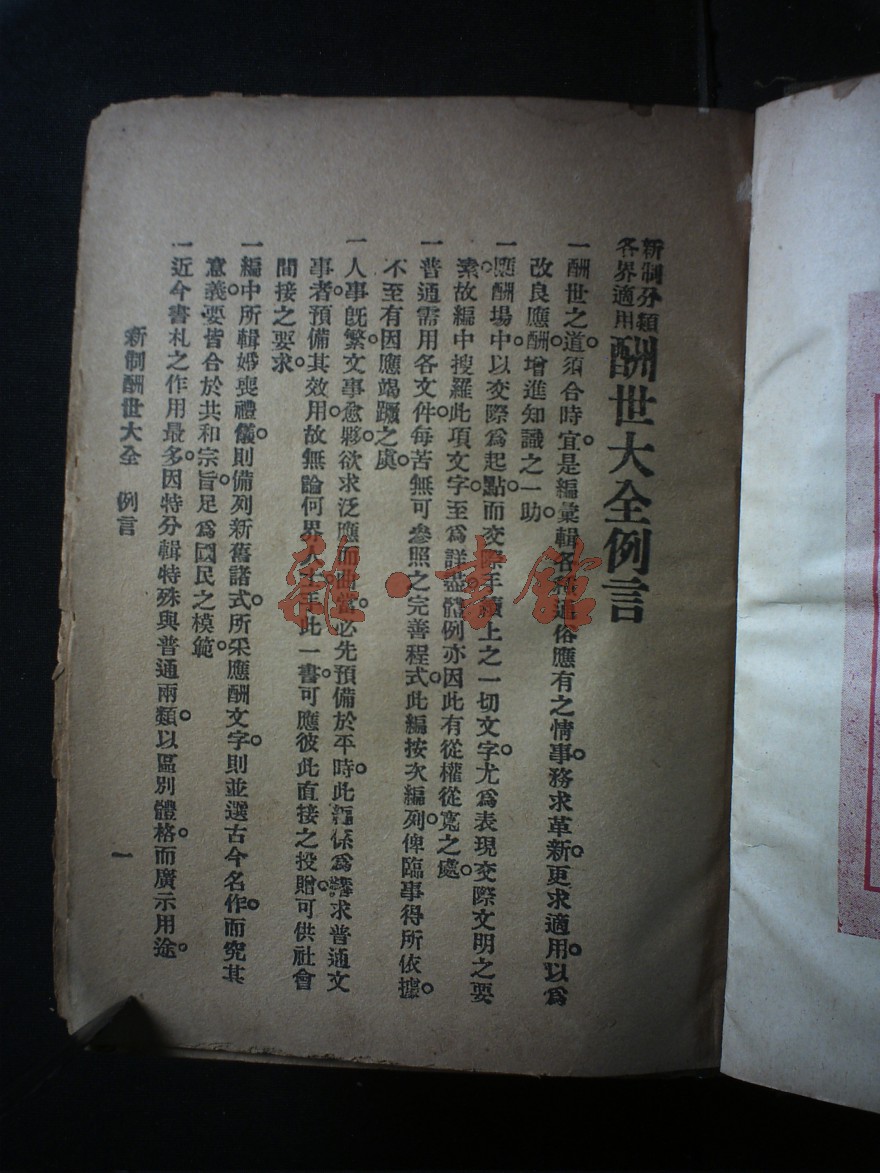 新制分類
各界適用
酬世大全例言
一酬世之道。須合時宜。是編彙輯各種通俗應有之情事。務求革新。更求適用。以爲
改良應酬。增進知識之一助。
一應酬場中。以交際爲起點。而交際手續上之一切文字。尤爲表現交際文明之要
素。故編中搜羅此項文字。至爲詳盡。體例亦因此有從權從寬之處。
一普通需用各文件。每苦無可參照之完善程式。此編按次編列。俾臨事得所依據。
不至有因應竭蹶之虞。
一人事旣繁。文事愈夥。欲求泛應而曲當。必先預備於平時。此編係爲講求普通文
事者。預備其效用。故無論何界人士。手此一書。可應彼此直接之投贈。可供社會
間接之要求。
一編中所輯婚喪禮儀。則備列新舊諸式。所采應酬文字。則並選古今名作。而究其
意義。要皆合於共和宗旨。足爲國民之模範。
一近今書札之作用最多。因特分輯特殊與普通兩類。以區別體格。而廣示用途。
新制酬世大全 例言
一
雜·書館